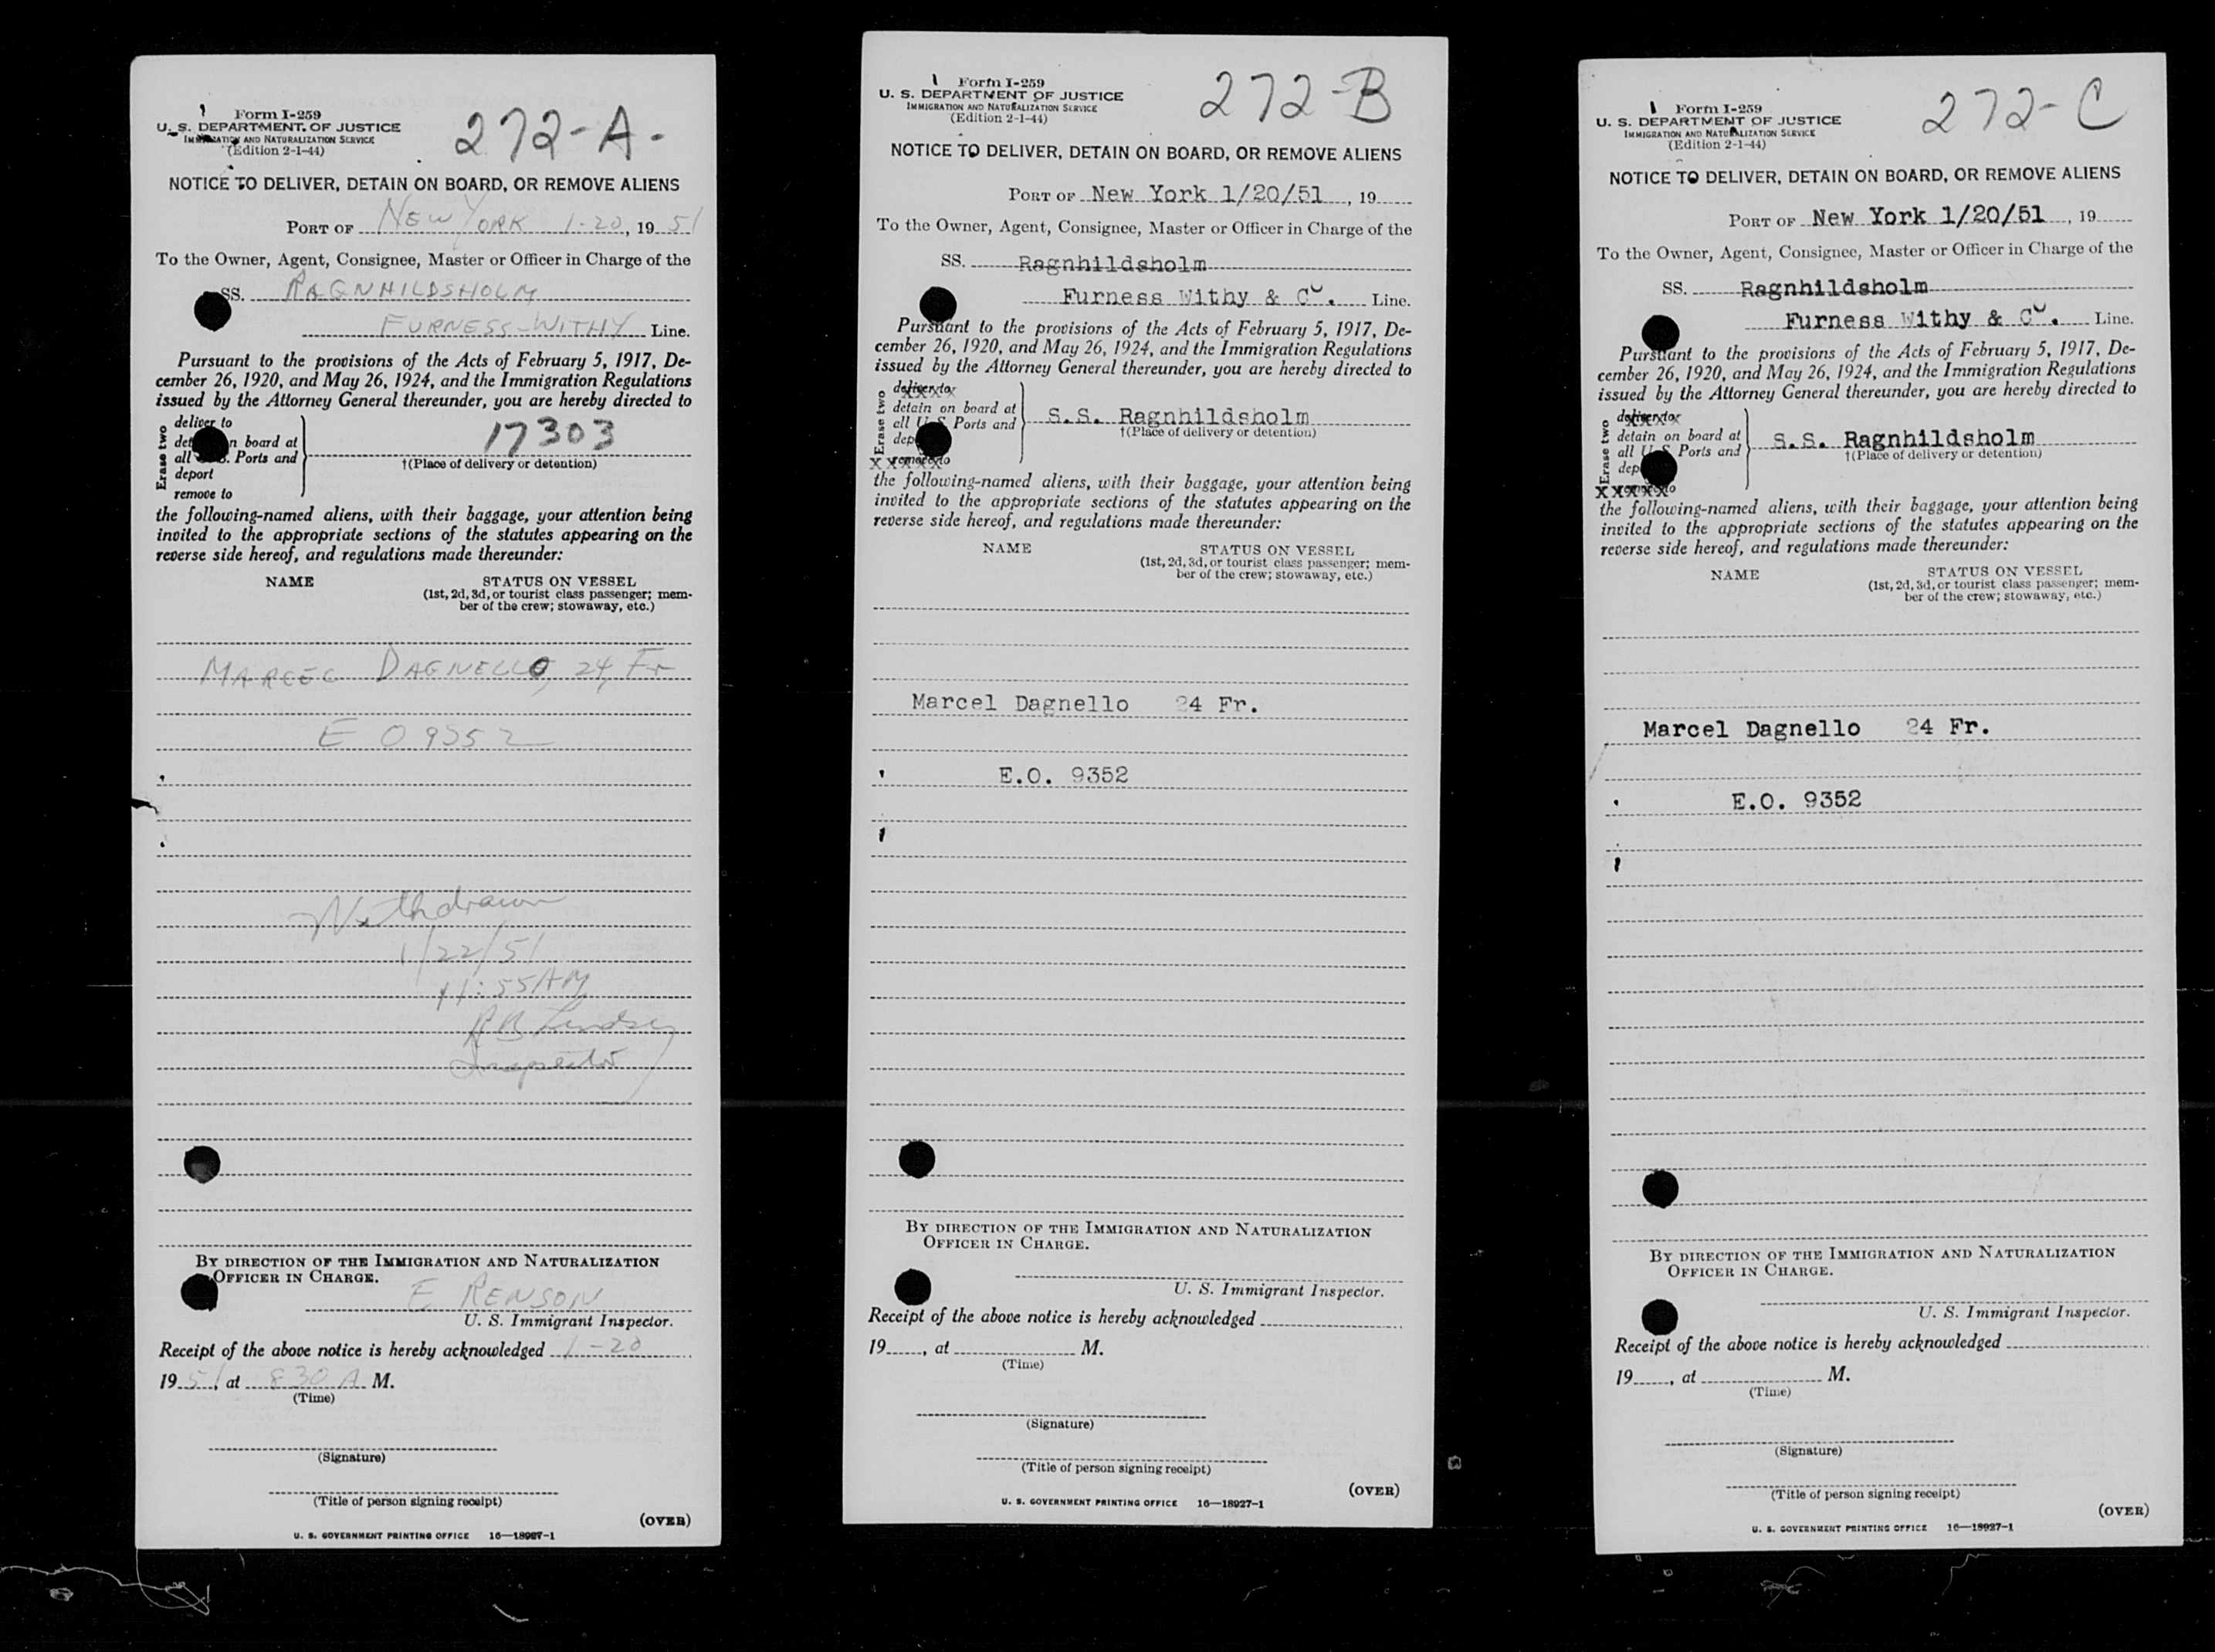 Form I-259
U. S. DEPARTMENT OF JUSTICE
IMMIGRATION AND NATURALIZATION SERVICE
(Edition 2-1-44)
272-A-
NOTICE TO DELIVER, DETAIN ON BOARD, OR REMOVE ALIENS
PORT OF NEW YORK 1-20, 19 51
To the Owner, Agent, Consignee, Master or Officer in Charge of the
SS. RAGNHILDSHOLM
FURNESS-WITHY Line.
Pursuant to the provisions of the Acts of February 5, 1917, De-
cember 26, 1920, and May 26, 1924, and the Immigration Regulations
issued by the Attorney General thereunder, you are hereby directed to
Erase two
deliver to
detain on board at
all U. S. Ports and
deport
remove to
17303
†(Place of delivery or detention)
the following-named aliens, with their baggage, your attention being
invited to the appropriate sections of the statutes appearing on the
reverse side hereof, and regulations made thereunder:
NAME STATUS ON VESSEL
(1st, 2d, 3d, or tourist class passenger; mem-
ber of the crew; stowaway, etc.)
MARCEL DAGNELLO, 24, Fr
E O 9352
Withdrawn
1/22/51
11:55AM
R B Lindsey
Inspector
BY DIRECTION OF THE IMMIGRATION AND NATURALIZATION
OFFICER IN CHARGE.
E RENSON
U. S. Immigrant Inspector.
Receipt of the above notice is hereby acknowledged 1-20
19 51, at 830 A M.
(Time)
(Signature)
(Title of person signing receipt)
(OVER)
U. S. GOVERNMENT PRINTING OFFICE 16—18927-1
Form I-259
U. S. DEPARTMENT OF JUSTICE
IMMIGRATION AND NATURALIZATION SERVICE
(Edition 2-1-44)
272-B
NOTICE TO DELIVER, DETAIN ON BOARD, OR REMOVE ALIENS
PORT OF New York 1/20/51, 19
To the Owner, Agent, Consignee, Master or Officer in Charge of the
SS. Ragnhildsholm
Furness Withy & Co. Line.
Pursuant to the provisions of the Acts of February 5, 1917, De-
cember 26, 1920, and May 26, 1924, and the Immigration Regulations
issued by the Attorney General thereunder, you are hereby directed to
Erase two
deliver to
detain on board at
all U. S. Ports and
dep
remove to
S.S. Ragnhildsholm
†(Place of delivery or detention)
the following-named aliens, with their baggage, your attention being
invited to the appropriate sections of the statutes appearing on the
reverse side hereof, and regulations made thereunder:
NAME STATUS ON VESSEL
(1st, 2d, 3d, or tourist class passenger; mem-
ber of the crew; stowaway, etc.)
Marcel Dagnello 24 Fr.
E.O. 9352
BY DIRECTION OF THE IMMIGRATION AND NATURALIZATION
OFFICER IN CHARGE.
U. S. Immigrant Inspector.
Receipt of the above notice is hereby acknowledged
19, at M.
(Time)
(Signature)
(Title of person signing receipt)
(OVER)
U. S. GOVERNMENT PRINTING OFFICE 16—18927-1
Form I-259
U. S. DEPARTMENT OF JUSTICE
IMMIGRATION AND NATURALIZATION SERVICE
(Edition 2-1-44)
272-C
NOTICE TO DELIVER, DETAIN ON BOARD, OR REMOVE ALIENS
PORT OF New York 1/20/51, 19
To the Owner, Agent, Consignee, Master or Officer in Charge of the
SS. Ragnhildsholm
Furness Withy & Co. Line.
Pursuant to the provisions of the Acts of February 5, 1917, De-
cember 26, 1920, and May 26, 1924, and the Immigration Regulations
issued by the Attorney General thereunder, you are hereby directed to
Erase two
deliver to
detain on board at
all U. S. Ports and
dep
remove to
S.S. Ragnhildsholm
†(Place of delivery or detention)
the following-named aliens, with their baggage, your attention being
invited to the appropriate sections of the statutes appearing on the
reverse side hereof, and regulations made thereunder:
NAME STATUS ON VESSEL
(1st, 2d, 3d, or tourist class passenger; mem-
ber of the crew; stowaway, etc.)
Marcel Dagnello 24 Fr.
E.O. 9352
BY DIRECTION OF THE IMMIGRATION AND NATURALIZATION
OFFICER IN CHARGE.
U. S. Immigrant Inspector.
Receipt of the above notice is hereby acknowledged
19, at M.
(Time)
(Signature)
(Title of person signing receipt)
(OVER)
U. S. GOVERNMENT PRINTING OFFICE 16—18927-1